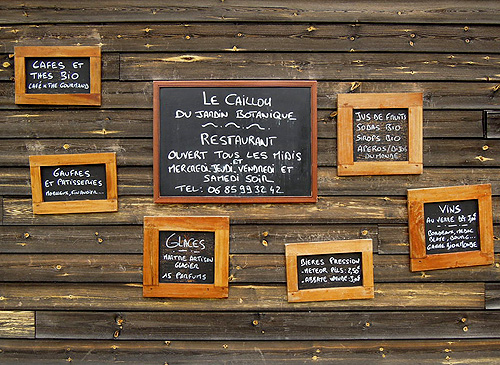 CAFES ET
THES BIO
CAFÉ & THÉ GOURMAND
LE CAILLOU
DU JARDIN BOTANIQUE
RESTAURANT
OUVERT TOUS LES MIDIS
ET
MERCREDI, JEUDI, VENDREDI ET
SAMEDI SOIR
TEL: 06 85 99 32 42
JUS DE FRUITS
SODAS BIO
SIROPS BIO
APEROS/DIJOS
DU MONDE
GAUFRES
ET PATISSERIES
GLACES
MAITRE ARTISAN
GLACIER
15 PARFUMS
BIERES PRESSION
METEOR PILS: 2,50€
VINS
AU VERRE
BORDEAUX, MEDOC